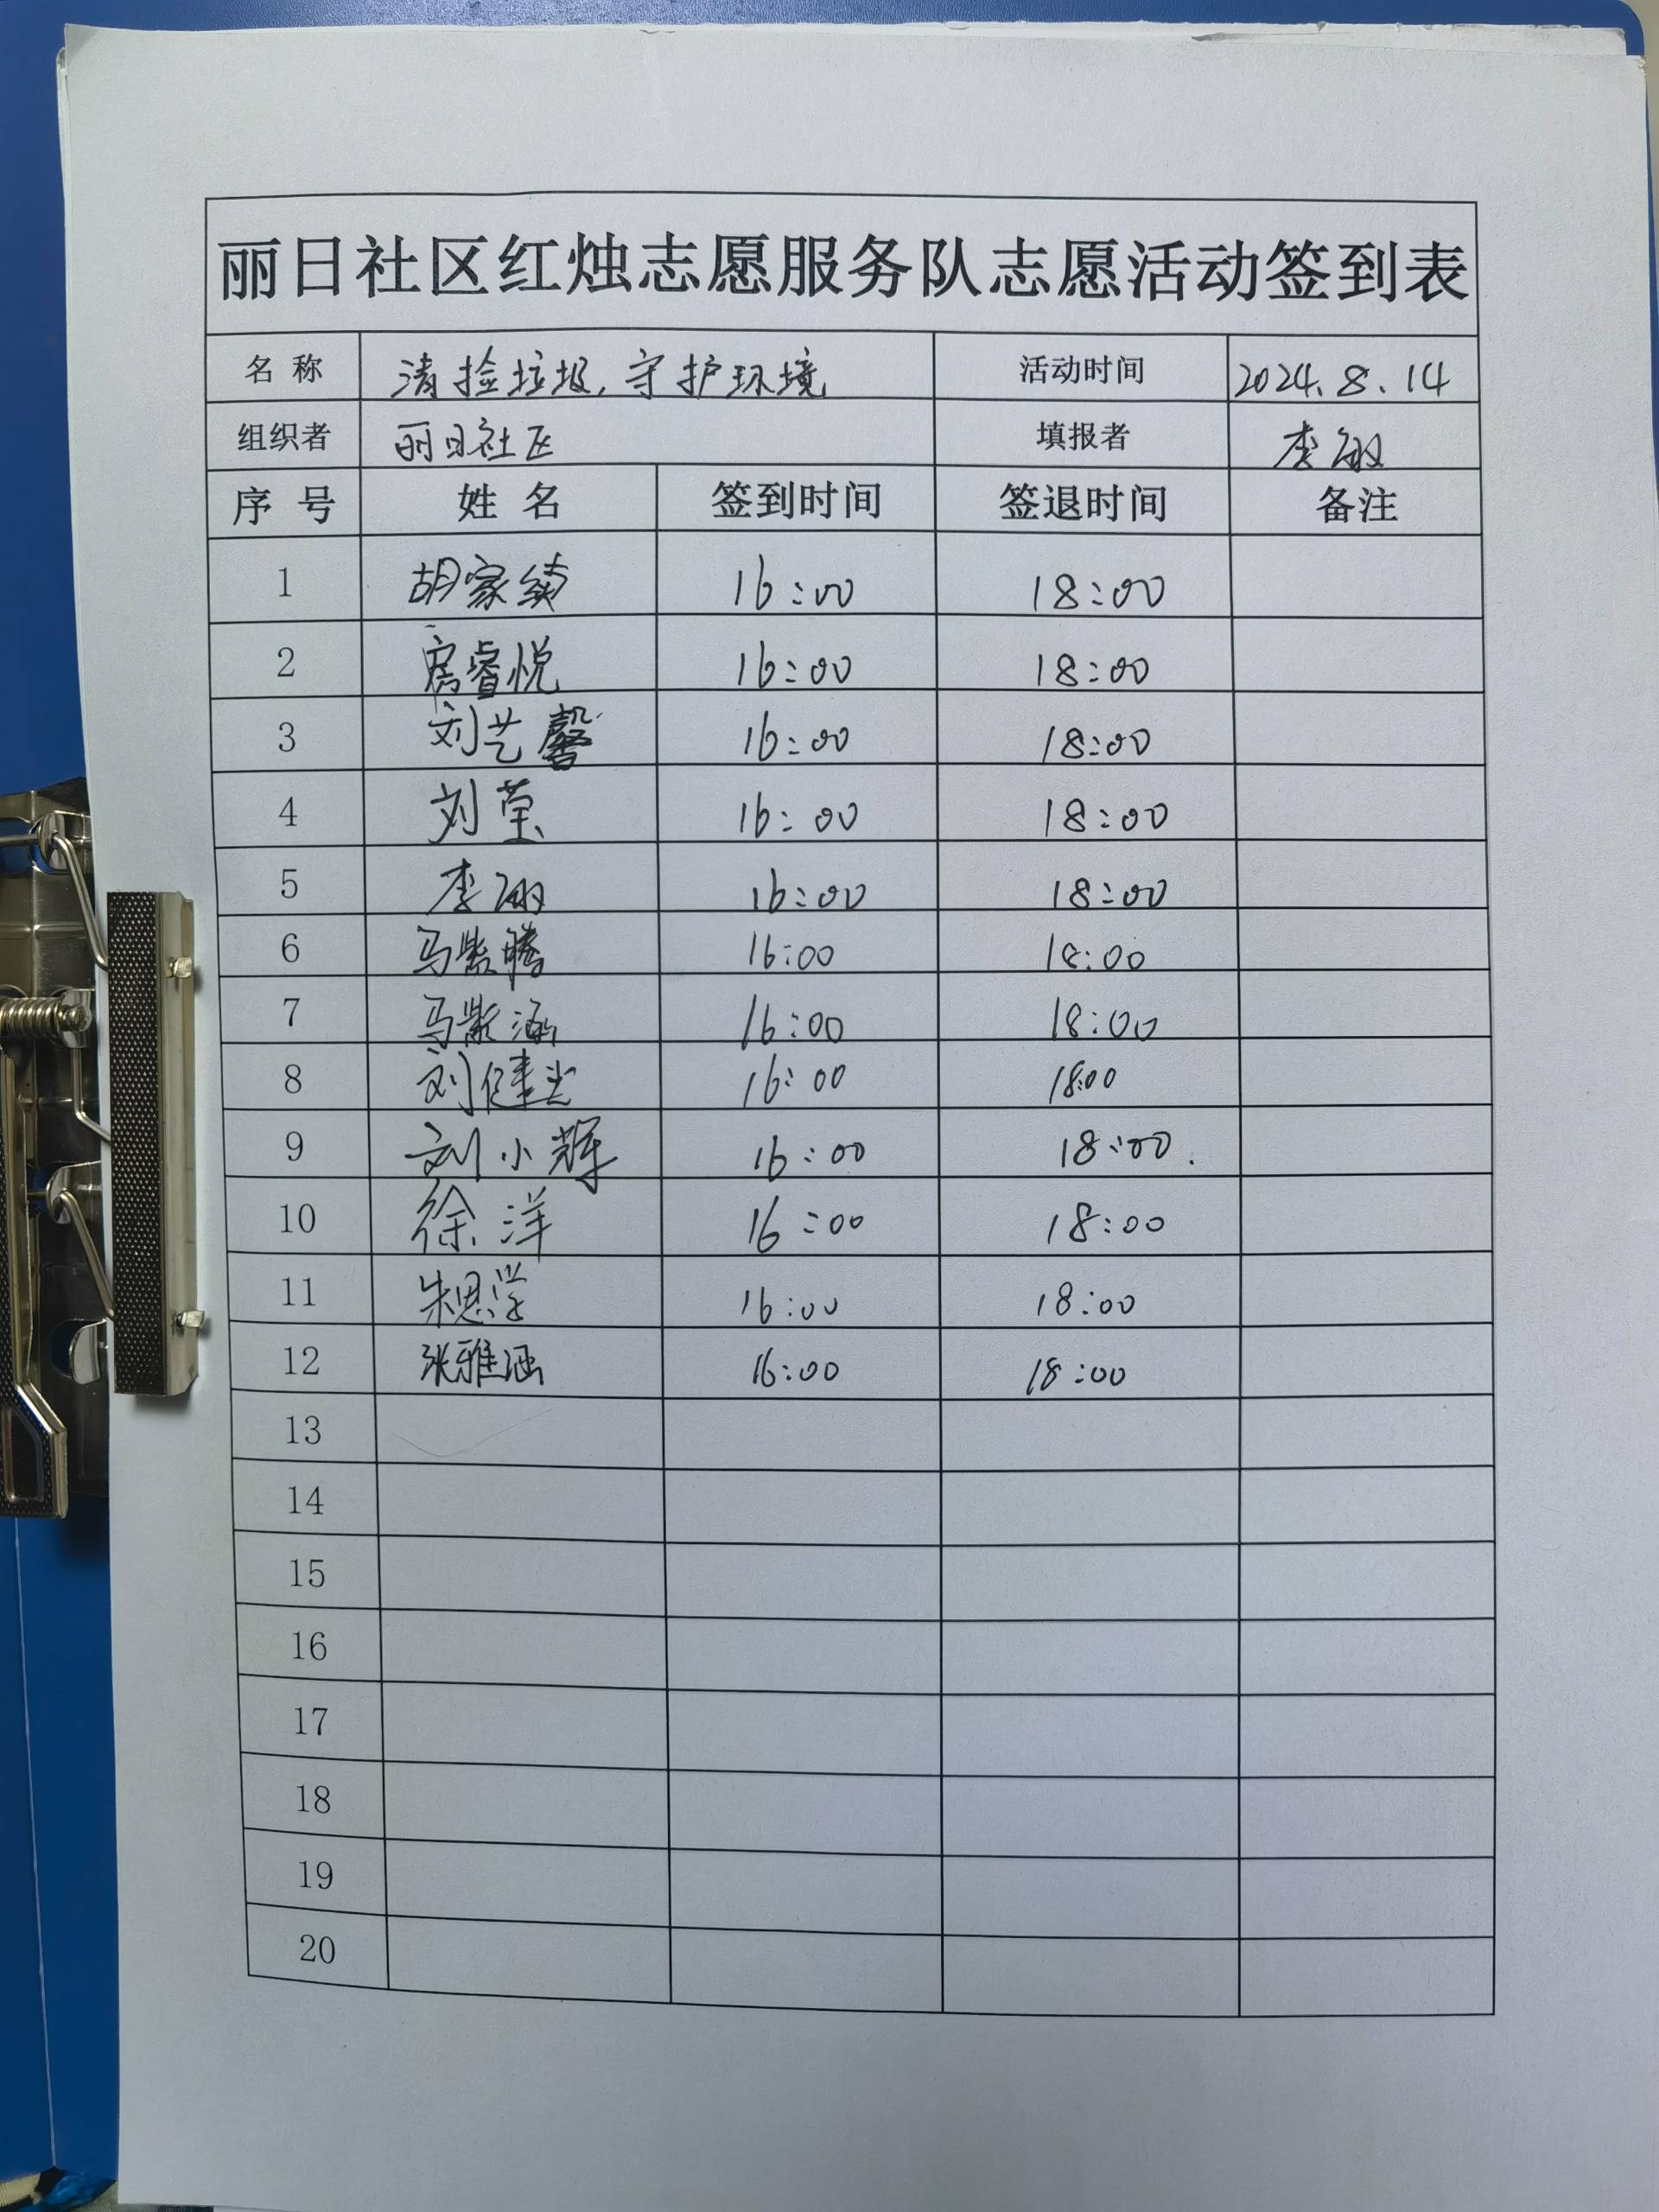 丽日社区红烛志愿服务队志愿活动签到表
名 称 清捡垃圾,守护环境 活动时间 2024.8.14
组织者 丽日社区 填报者 李敏
序 号 姓 名 签到时间 签退时间 备注
1 胡家续 16:00 18:00
2 睿悦 16:00 18:00
3 刘艺馨 16:00 18:00
4 刘莹 16:00 18:00
5 李敏 16:00 18:00
6 马紫腾 16:00 18:00
7 马紫涵 16:00 18:00
8 刘健 16:00 18:00
9 刘小辉 16:00 18:00.
10 徐洋 16:00 18:00
11 朱思学 16:00 18:00
12 张雅涵 16:00 18:00
13
14
15
16
17
18
19
20